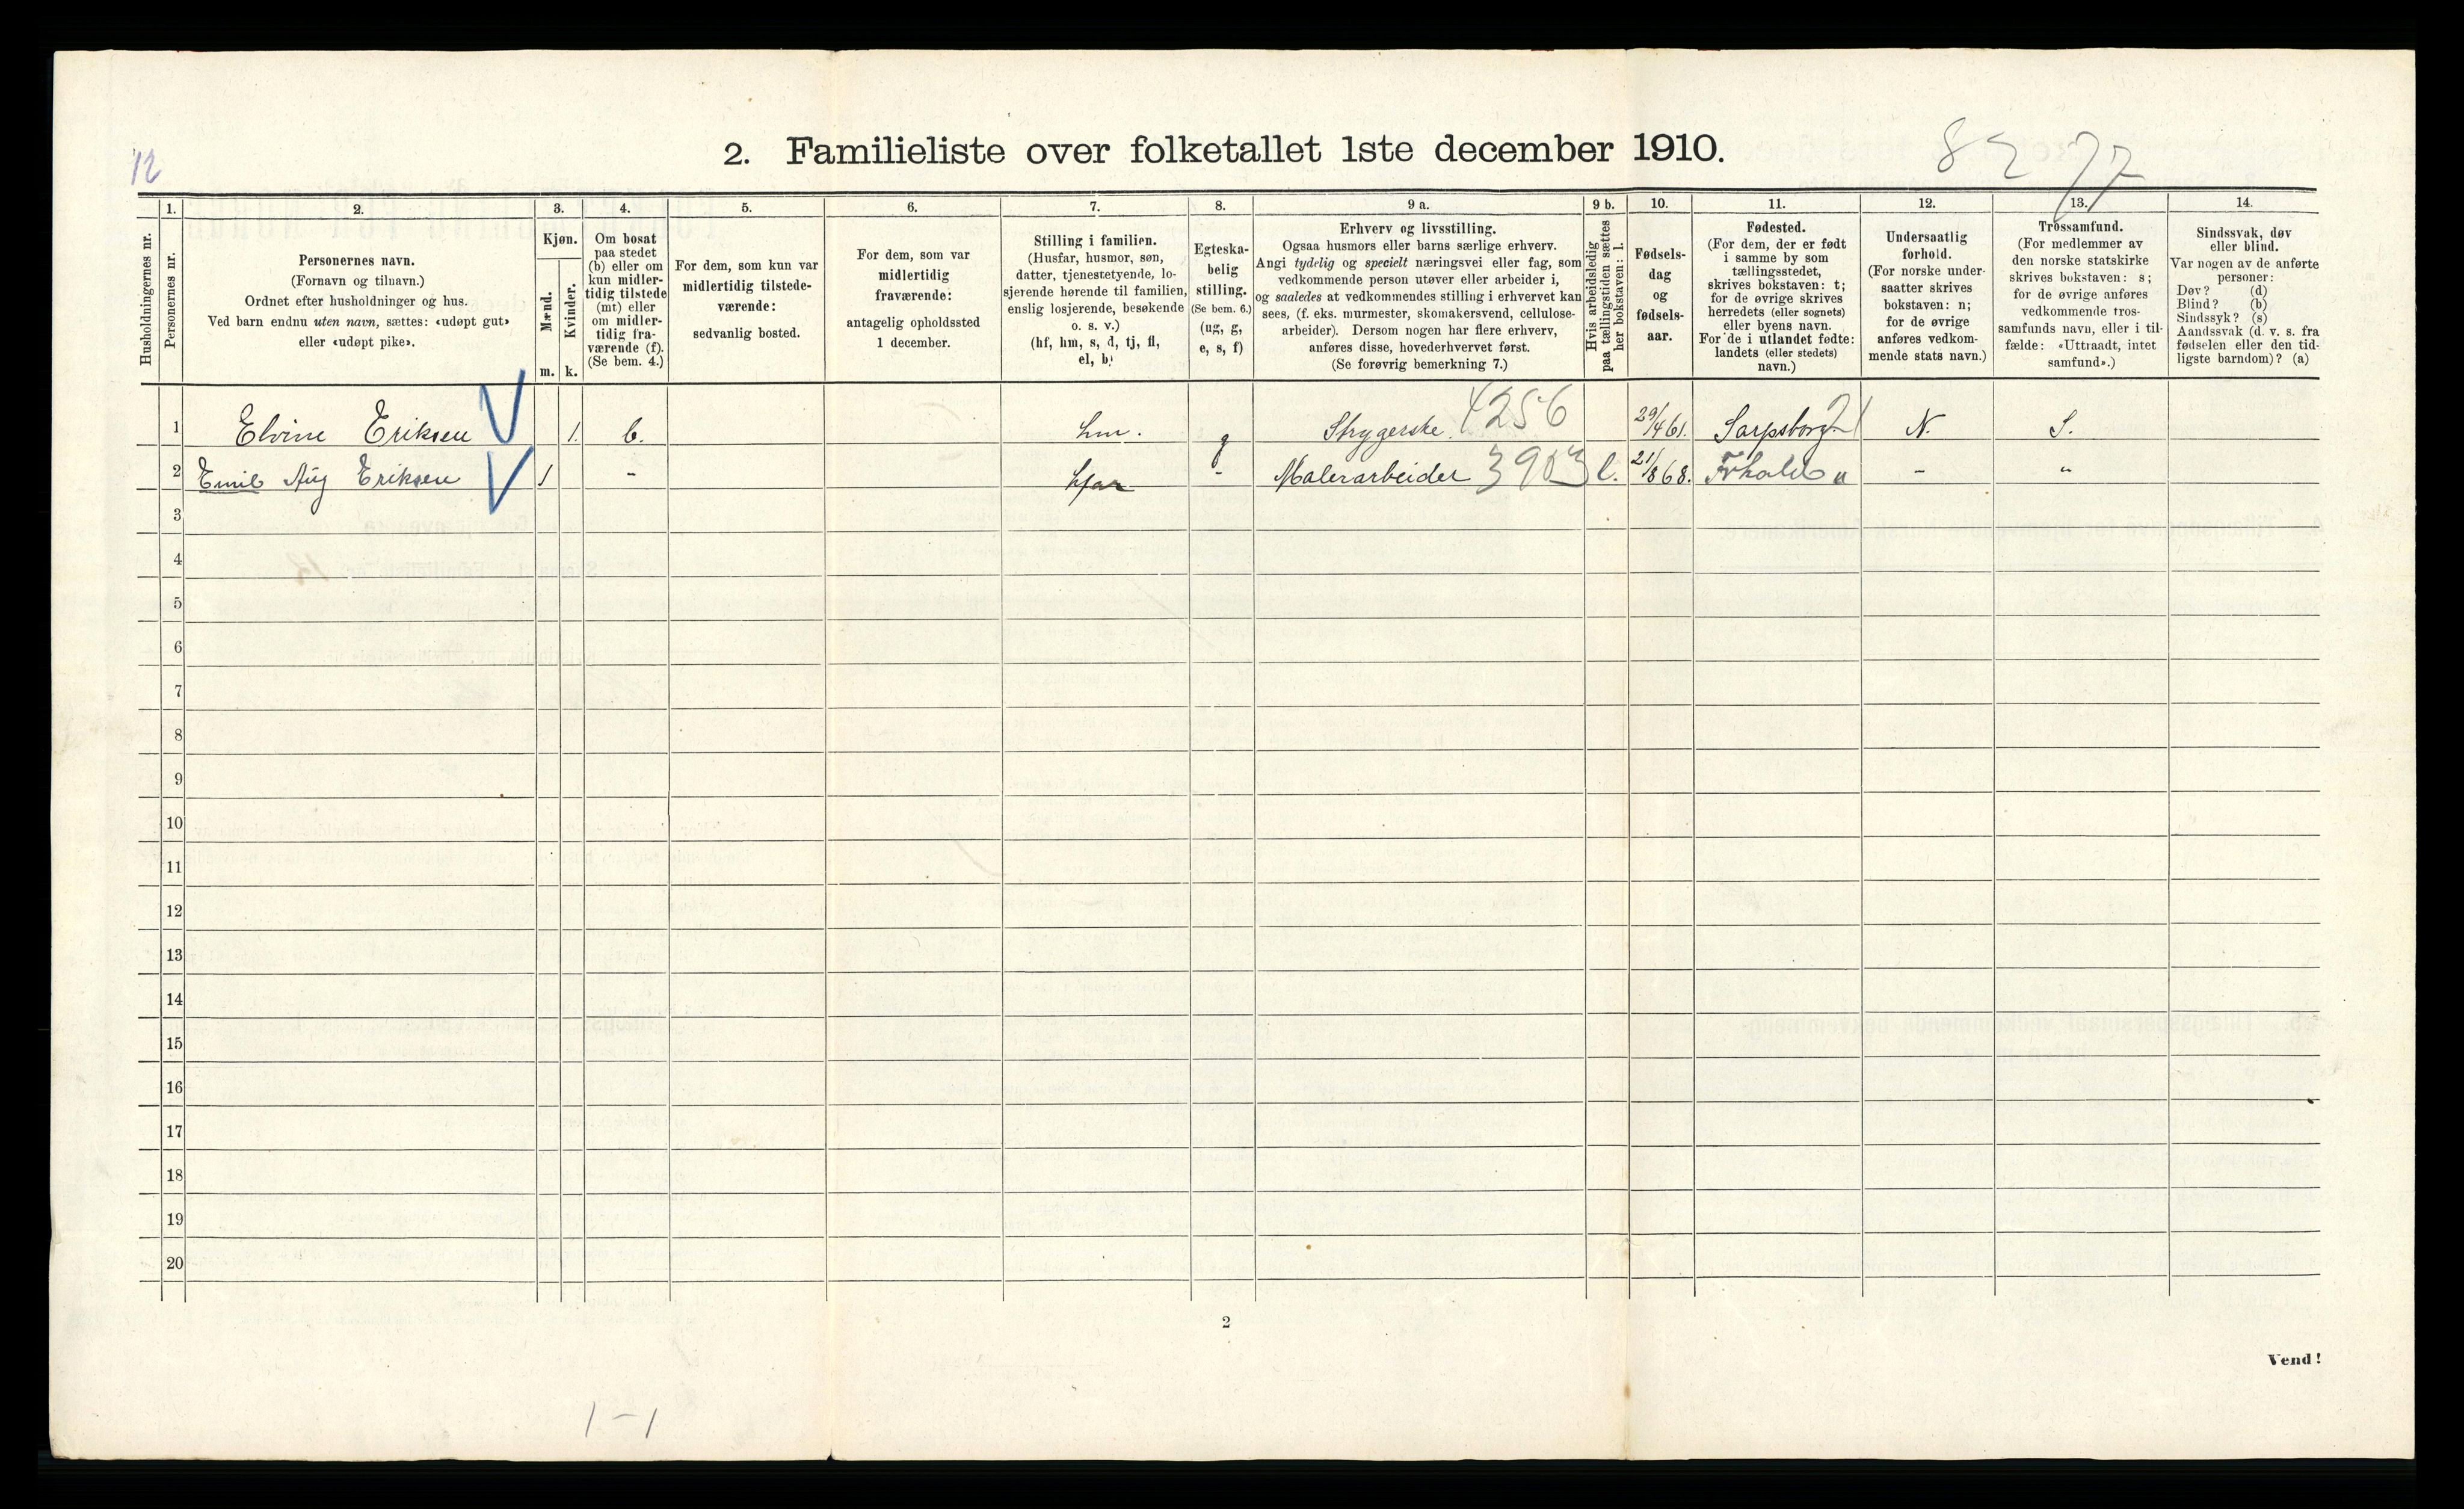 12
2. Familieliste over folketallet 1ste december 1910.
82 77
1. 2. 3. 4. 5. 6. 7. 8. 9 a. 9 b. 10. 11. 12. 13. 14.
Husholdningernes nr.
Personernes nr.
Personernes navn.
(Fornavn og tilnavn.)
Ordnet efter husholdninger og hus.
Ved barn endnu uten navn, sættes: «udøpt gut»
eller «udøpt pike».
Kjøn.
Mænd.
Kvinder.
m. k.
Om bosat
paa stedet
(b) eller om
kun midler-
tidig tilstede
(mt) eller
om midler-
tidig fra-
værende (f).
(Se bem. 4.)
For dem, som kun var
midlertidig tilstede-
værende:
sedvanlig bosted.
For dem, som var
midlertidig
fraværende:
antagelig opholdssted
1 december.
Stilling i familien.
(Husfar, husmor, søn,
datter, tjenestetyende, lo-
sjerende hørende til familien,
enslig losjerende, besøkende
o. s. v.)
(hf, hm, s, d, tj, fl,
el, b)
Egteska-
belig
stilling.
(Se bem. 6.)
(ug, g,
e, s, f)
Erhverv og livsstilling.
Ogsaa husmors eller barns særlige erhverv.
Angi tydelig og specielt næringsvei eller fag, som
vedkommende person utøver eller arbeider i,
og saaledes at vedkommendes stilling i erhvervet kan
sees, (f. eks. murmester, skomakersvend, cellulose-
arbeider). Dersom nogen har flere erhverv,
anføres disse, hovederhvervet først.
(Se forøvrig bemerkning 7.)
Hvis arbeidsledig
paa tællingstiden sættes
her bokstaven: l.
Fødsels-
dag
og
fødsels-
aar.
Fødested.
(For dem, der er født
i samme by som
tællingsstedet,
skrives bokstaven: t;
for de øvrige skrives
herredets (eller sognets)
eller byens navn.
For de i utlandet fødte:
landets (eller stedets)
navn.)
Undersaatlig
forhold.
(For norske under-
saatter skrives
bokstaven: n;
for de øvrige
anføres vedkom-
mende stats navn.)
Trossamfund.
(For medlemmer av
den norske statskirke
skrives bokstaven: s;
for de øvrige anføres
vedkommende tros-
samfunds navn, eller i til-
fælde: «Uttraadt, intet
samfund».)
Sindssvak, døv
eller blind.
Var nogen av de anførte
personer:
Døv? (d)
Blind? (b)
Sindssyk? (s)
Aandssvak (d. v. s. fra
fødselen eller den tid-
ligste barndom)? (a)
1 Elvine Eriksen 1. b. hm. g Strygerske. 4256 29/4 61. Sarpsborg 21 N. S.
2 Emil Aug Eriksen 1 - hfar - Malerarbeider 3903 l. 21/8 68. Frhald " - "
3
4
5
6
7
8
9
10
11
12
13
14
15
16
17
18
19
20
2
Vend!
1-1